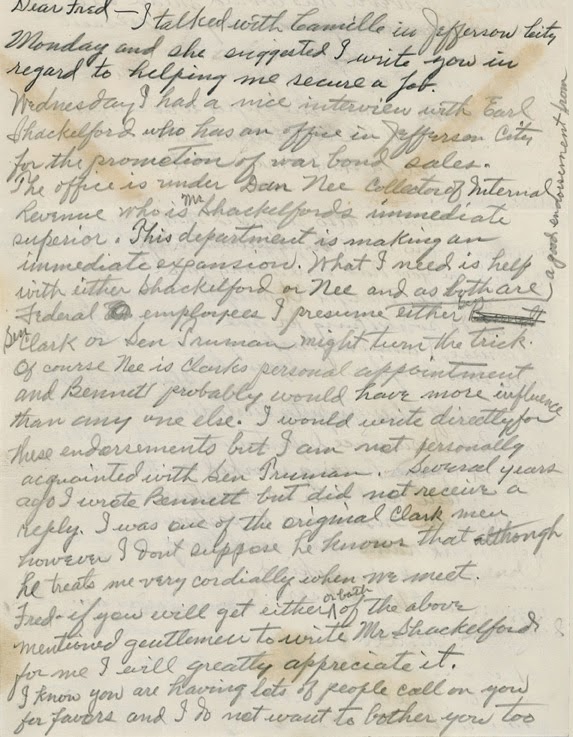 Dear Fred — I talked with Camille in Jefferson City
Monday and she suggested I write you in
regard to helping me secure a job.
Wednesday I had a nice interview with Earl
Shackelford who has an office in Jefferson City
for the promotion of war bond sales.
The office is under Dan Nee Collector of Internal
Revenue who is Mr Shackelfords immediate
superior. This department is making an
immediate expansion. What I need is help
with either Shackelford or Nee and as both are
Federal employees I presume either
a good endorsement from
Sen
Clark or Sen Truman might turn the trick.
Of course Nee is Clarks personal appointment
and Bennett probably would have more influence
than any one else. I would write directly for
these endorsements but I am not personally
acquainted with Sen Truman. Several years
ago I wrote Bennett but did not receive a
reply. I was one of the original Clark men
however I dont suppose he knows that although
he treats me very cordially when we meet.
Fred - if you will get either or both of the above
mentioned gentlemen to write Mr Shackelford
for me I will greatly appreciate it.
I know you are having lots of people call on you
for favors and I do not want to bother you too